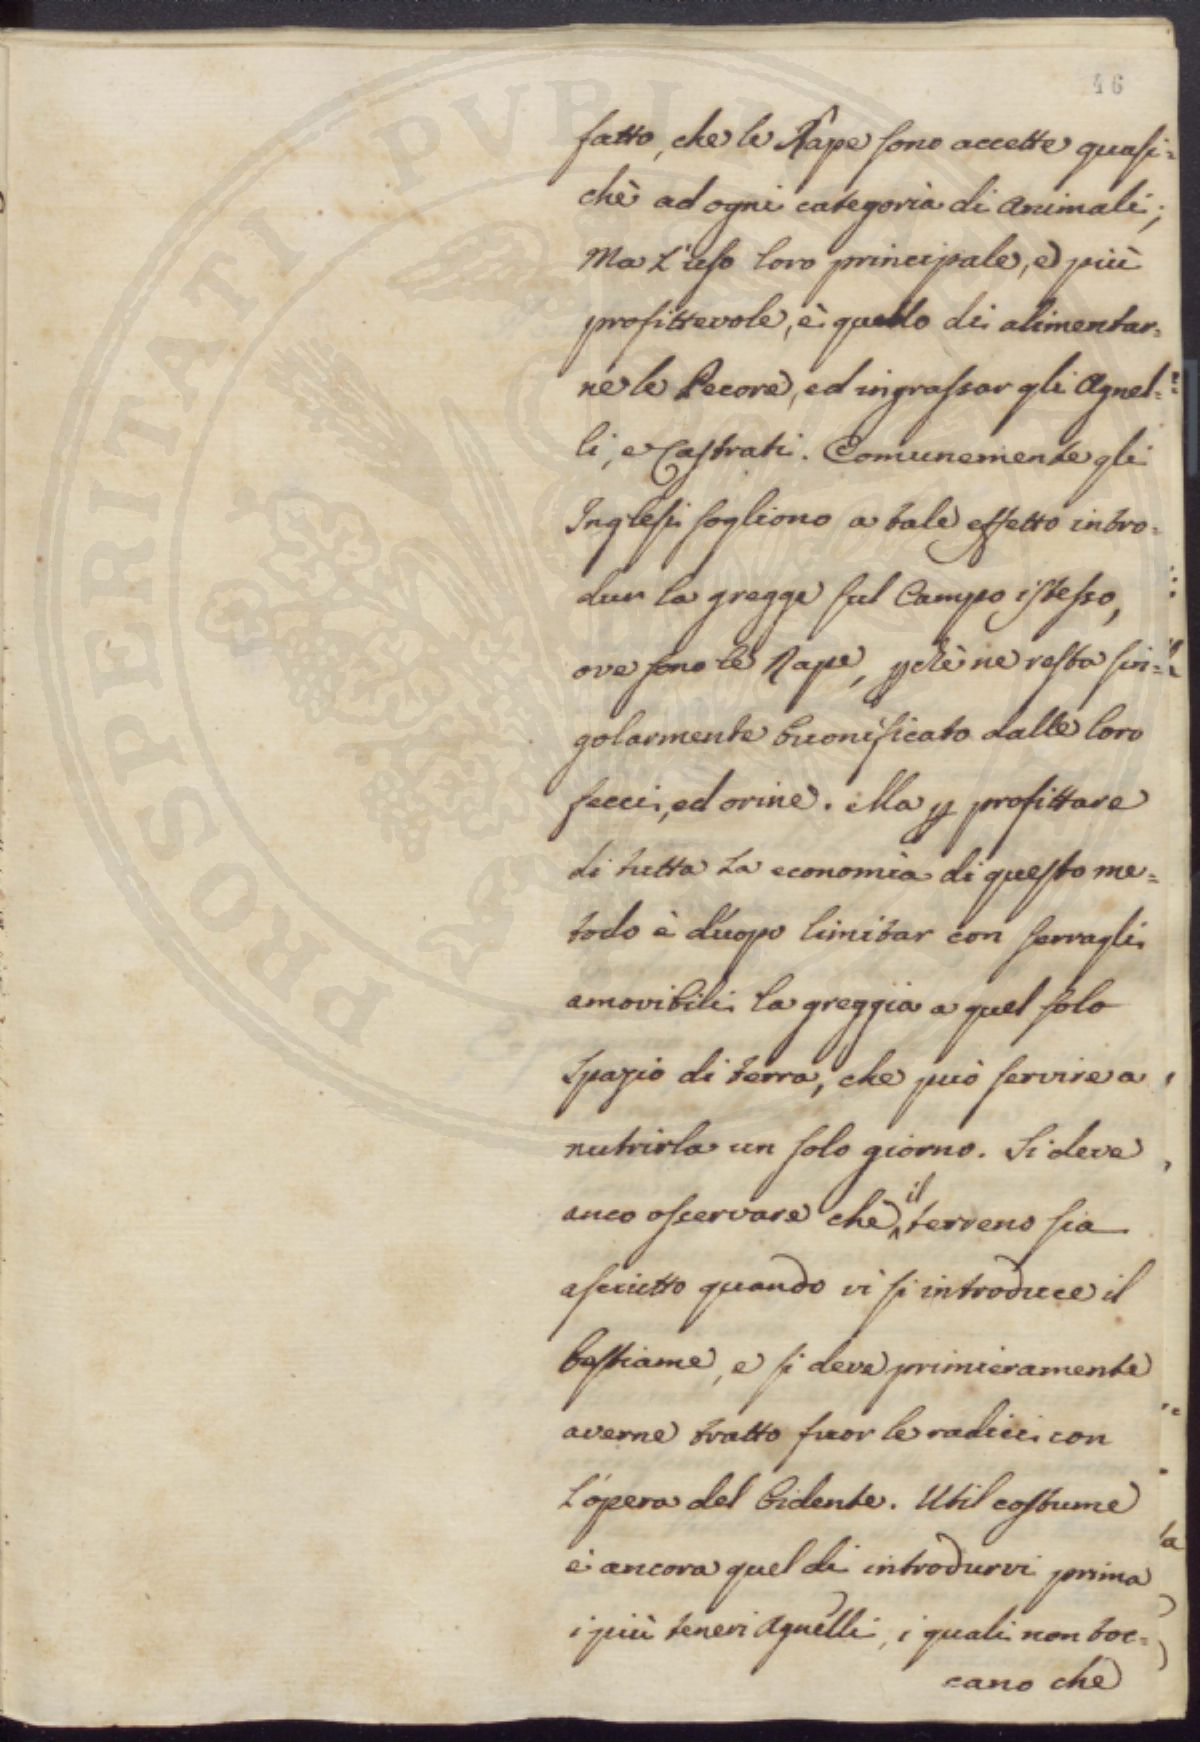 46
fatto, che le Rape sono accette quasi=
chè ad ogni categoria di Animali;
Ma l'uso loro principale, e più
profittevole, è quello di alimentar=
ne le Pecore, ed ingrassar gli Agnel=
li, e Castrati. Comunemente gli
Inglesi sogliono a tale effetto intro=
dur la gregge sul Campo istesso,
ove sono le Rape, p chè ne resta sin=
golarmente buonificato dalle loro
fecci, ed orine. Ma p profittare
di tutta la economia di questo me=
todo è d'uopo limitar con serragli
amovibili la greggia a quel solo
spazio di terra, che può servire a
nutrirla un solo giorno. Si deve
anco osservare che il terreno sia
asciutto quando vi si introduce il
bestiame, e si deve primieramente
averne tratto fuor le radici con
l'opera del bidente. Util costume
è ancora quel di introdurvi prima
i più teneri Agnelli, i quali non toc=
cano che
ta
PROSPERITATI PVBLI